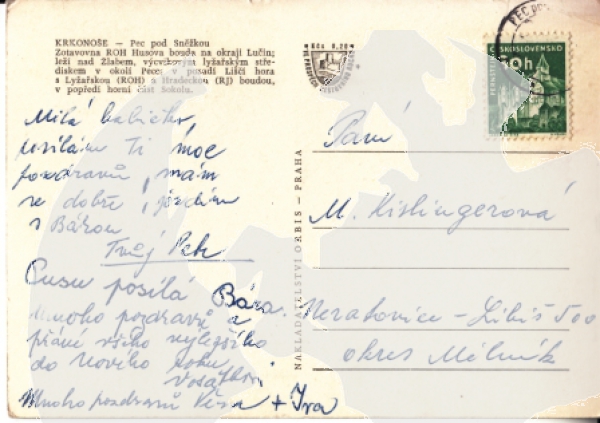 KRKONOŠE — Pec pod Sněžkou
Zotavovna ROH Husova bouda na okraji Lučin;
leží nad Žlabem, výcvikovým lyžařským stře-
diskem v okolí Pece; v pozadí Liščí hora
s Lyžařskou (ROH) a Hradeckou (RJ) boudou,
v popředí horní část Sokolu.
Milá babičko,
posílám Ti moc
pozdravů, mám
se dobře, jezdím
s Bárou
Tvůj Petr
Pusu posílá Bára.
Mnoho pozdravů a
přání všeho nejlepšího
do Nového roku
Mnoho pozdravů Věra + Iva
NAKLADATELSTVÍ ORBIS — PRAHA
PEC POD
ČESKOSLOVENSKO
Paní
M. Kislingerová
Neratovice - Libiš 500
okres Mělník